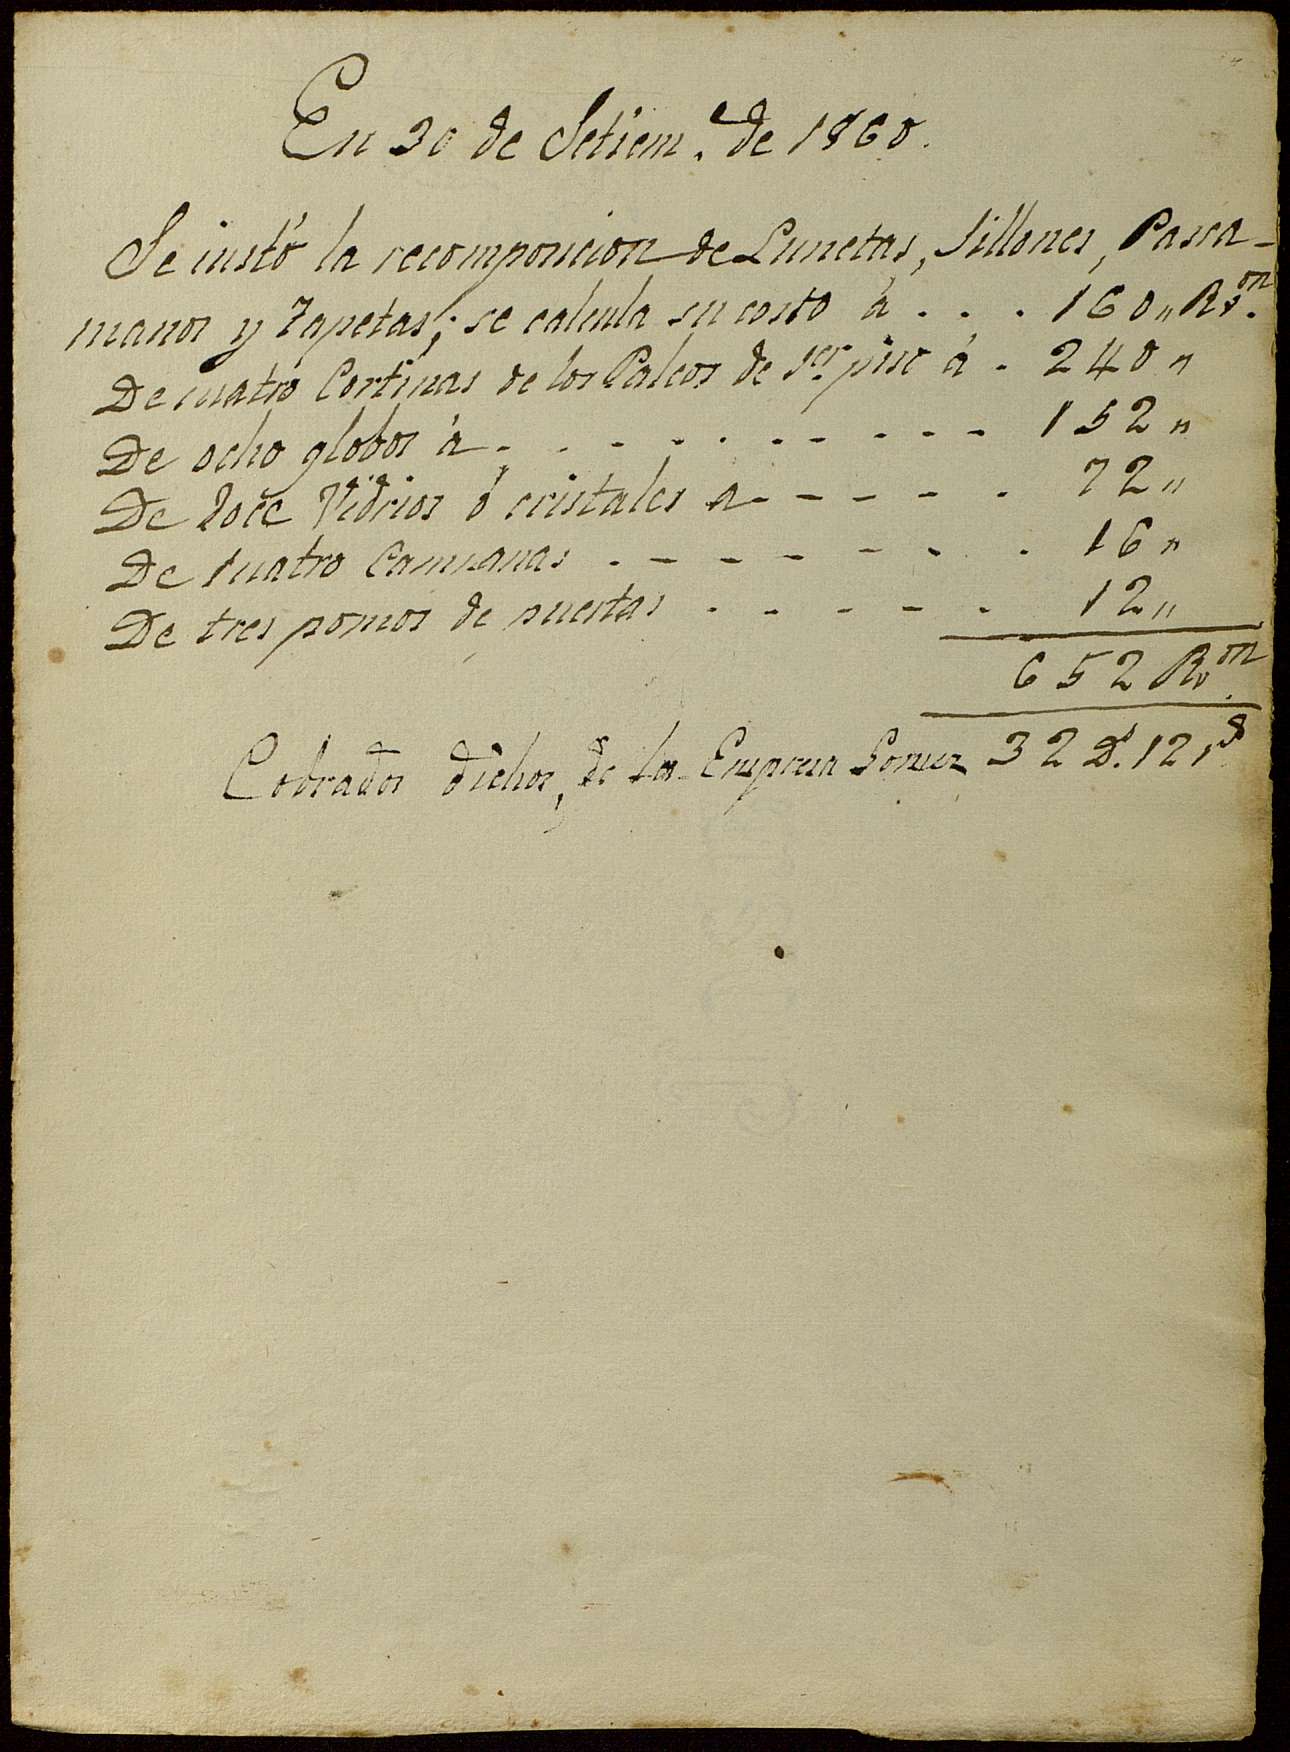 En 30 de Setiem.e de 1860.
Se justó la recomposicion de Lunetas, Sillones, Pasca-
manos y Tapetas; se calcula su costo á . . . 160 „ Rv.on
De cuatro Cortinas de los Palcos de 1er piso á . 240 „
De ocho globos á . . - - . . - - - - - 152 „
De doce Vidrios ó cristales a - - - - - . 72 „
De cuatro Campanas . - - - - - . . 16 „
De tres pomos de puertas . . - . - . 12 „
652 Rv.on
Cobrados dichos, de la Empresa Gomez 32 D.s 12 r.s